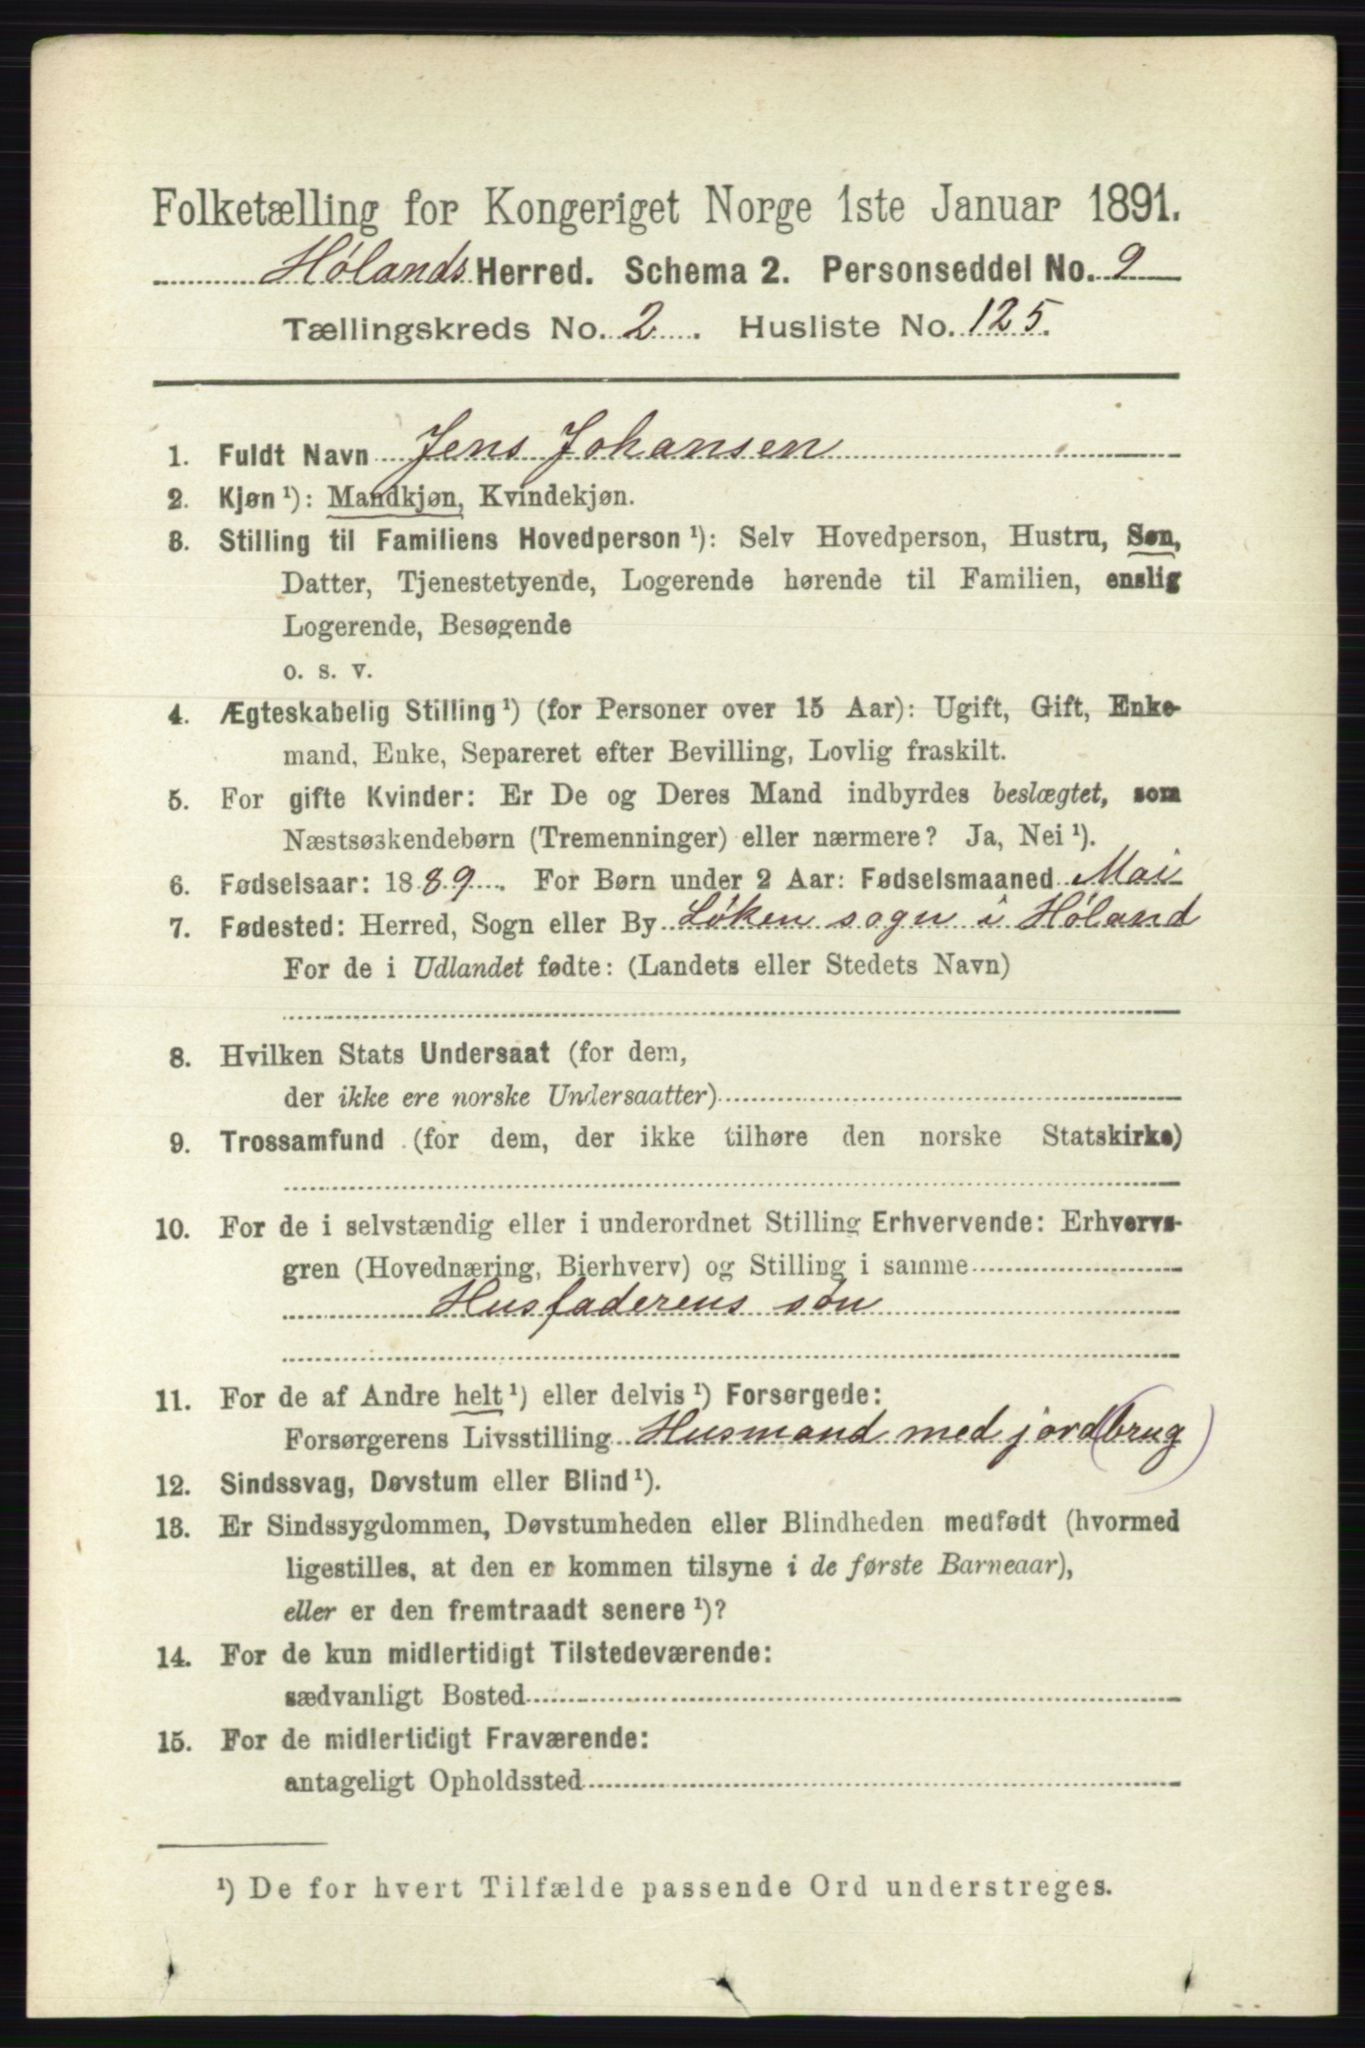 Folketælling for Kongeriget Norge 1ste Januar 1891.
Hølands Herred. Schema 2. Personseddel No. 9
Tællingskreds No. 2. Husliste No. 125.
1. Fuldt Navn Jens Johansen
2. Kjøn ¹): Mandkjøn, Kvindekjøn.
3. Stilling til Familiens Hovedperson ¹): Selv Hovedperson, Hustru, Søn,
Datter, Tjenestetyende, Logerende hørende til Familien, enslig
Logerende, Besøgende
o. s. v.
4. Ægteskabelig Stilling ¹) (for Personer over 15 Aar): Ugift, Gift, Enke-
mand, Enke, Separeret efter Bevilling, Lovlig fraskilt.
5. For gifte Kvinder: Er De og Deres Mand indbyrdes beslægtet, som
Næstsøskendebørn (Tremenninger) eller nærmere? Ja, Nei ¹).
6. Fødselsaar: 1889. For Børn under 2 Aar: Fødselsmaaned Mai
7. Fødested: Herred, Sogn eller By Løken sogn i Høland
For de i Udlandet fødte: (Landets eller Stedets Navn)
8. Hvilken Stats Undersaat (for dem,
der ikke ere norske Undersaatter)
9. Trossamfund (for dem, der ikke tilhøre den norske Statskirke)
10. For de i selvstændig eller i underordnet Stilling Erhvervende: Erhvervs-
gren (Hovednæring, Bierhverv) og Stilling i samme
Husfaderens søn
11. For de af Andre helt ¹) eller delvis ¹) Forsørgede:
Forsørgerens Livsstilling Husmand med jord(brug)
12. Sindssvag, Døvstum eller Blind ¹).
13. Er Sindssygdommen, Døvstumheden eller Blindheden medfødt (hvormed
ligestilles, at den er kommen tilsyne i de første Barneaar),
eller er den fremtraadt senere ¹)?
14. For de kun midlertidigt Tilstedeværende:
sædvanligt Bosted
15. For de midlertidigt Fraværende:
antageligt Opholdssted
¹) De for hvert Tilfælde passende Ord understreges.